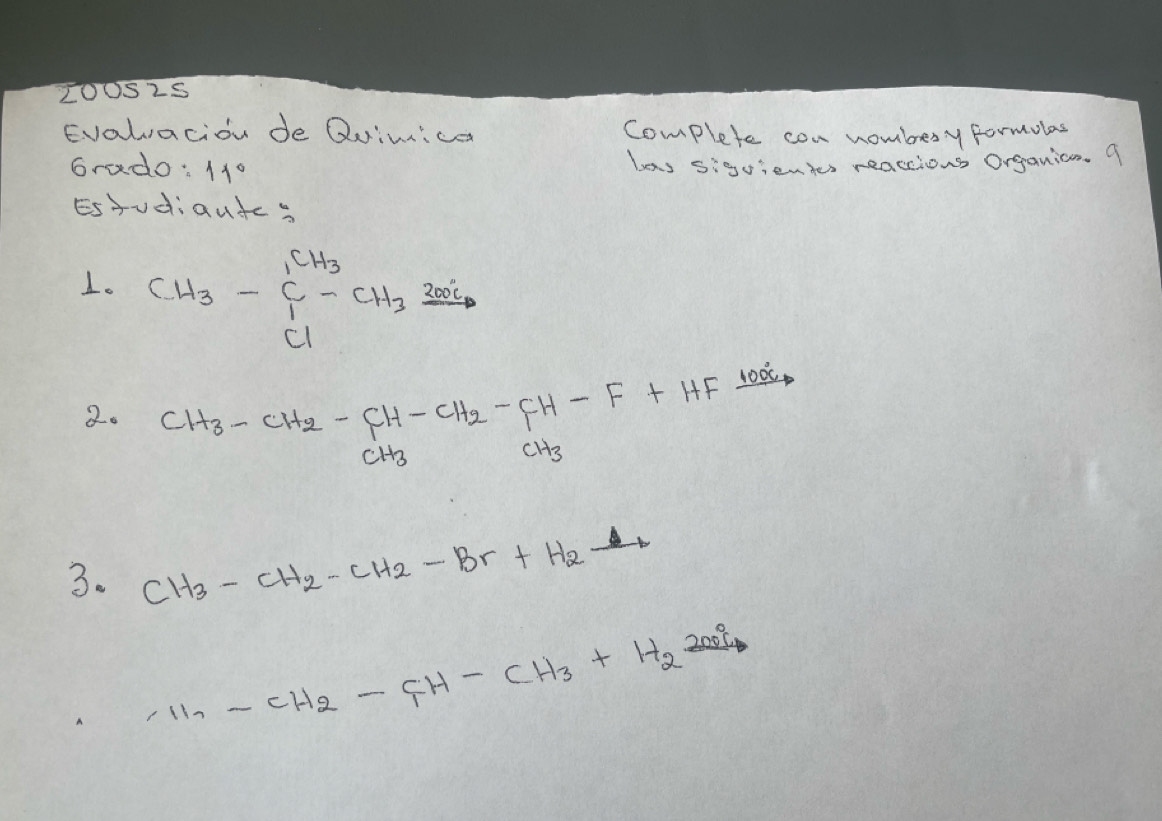 200525
Evaluación de Quimica
Grado: 11°
Estudiante:
Complete con nombres y formulas
las siguientes reacciones Organica. 9
CH3
1. CH3 - C - CH3 200°C
Cl
2. CH3 - CH2 - CH - CH2 - CH - F + HF 100°C
CH3 CH3
3. CH3 - CH2 - CH2 - Br + H2 Δ
- CH2 - CH - CH3 + H2 200°C